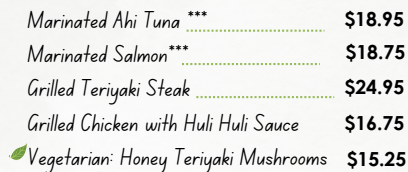 Marinated Ahi Tuna *** $18.95
Marinated Salmon*** $18.75
Grilled Teriyaki Steak $24.95
Grilled Chicken with Huli Huli Sauce $16.75
Vegetarian: Honey Teriyaki Mushrooms $15.25